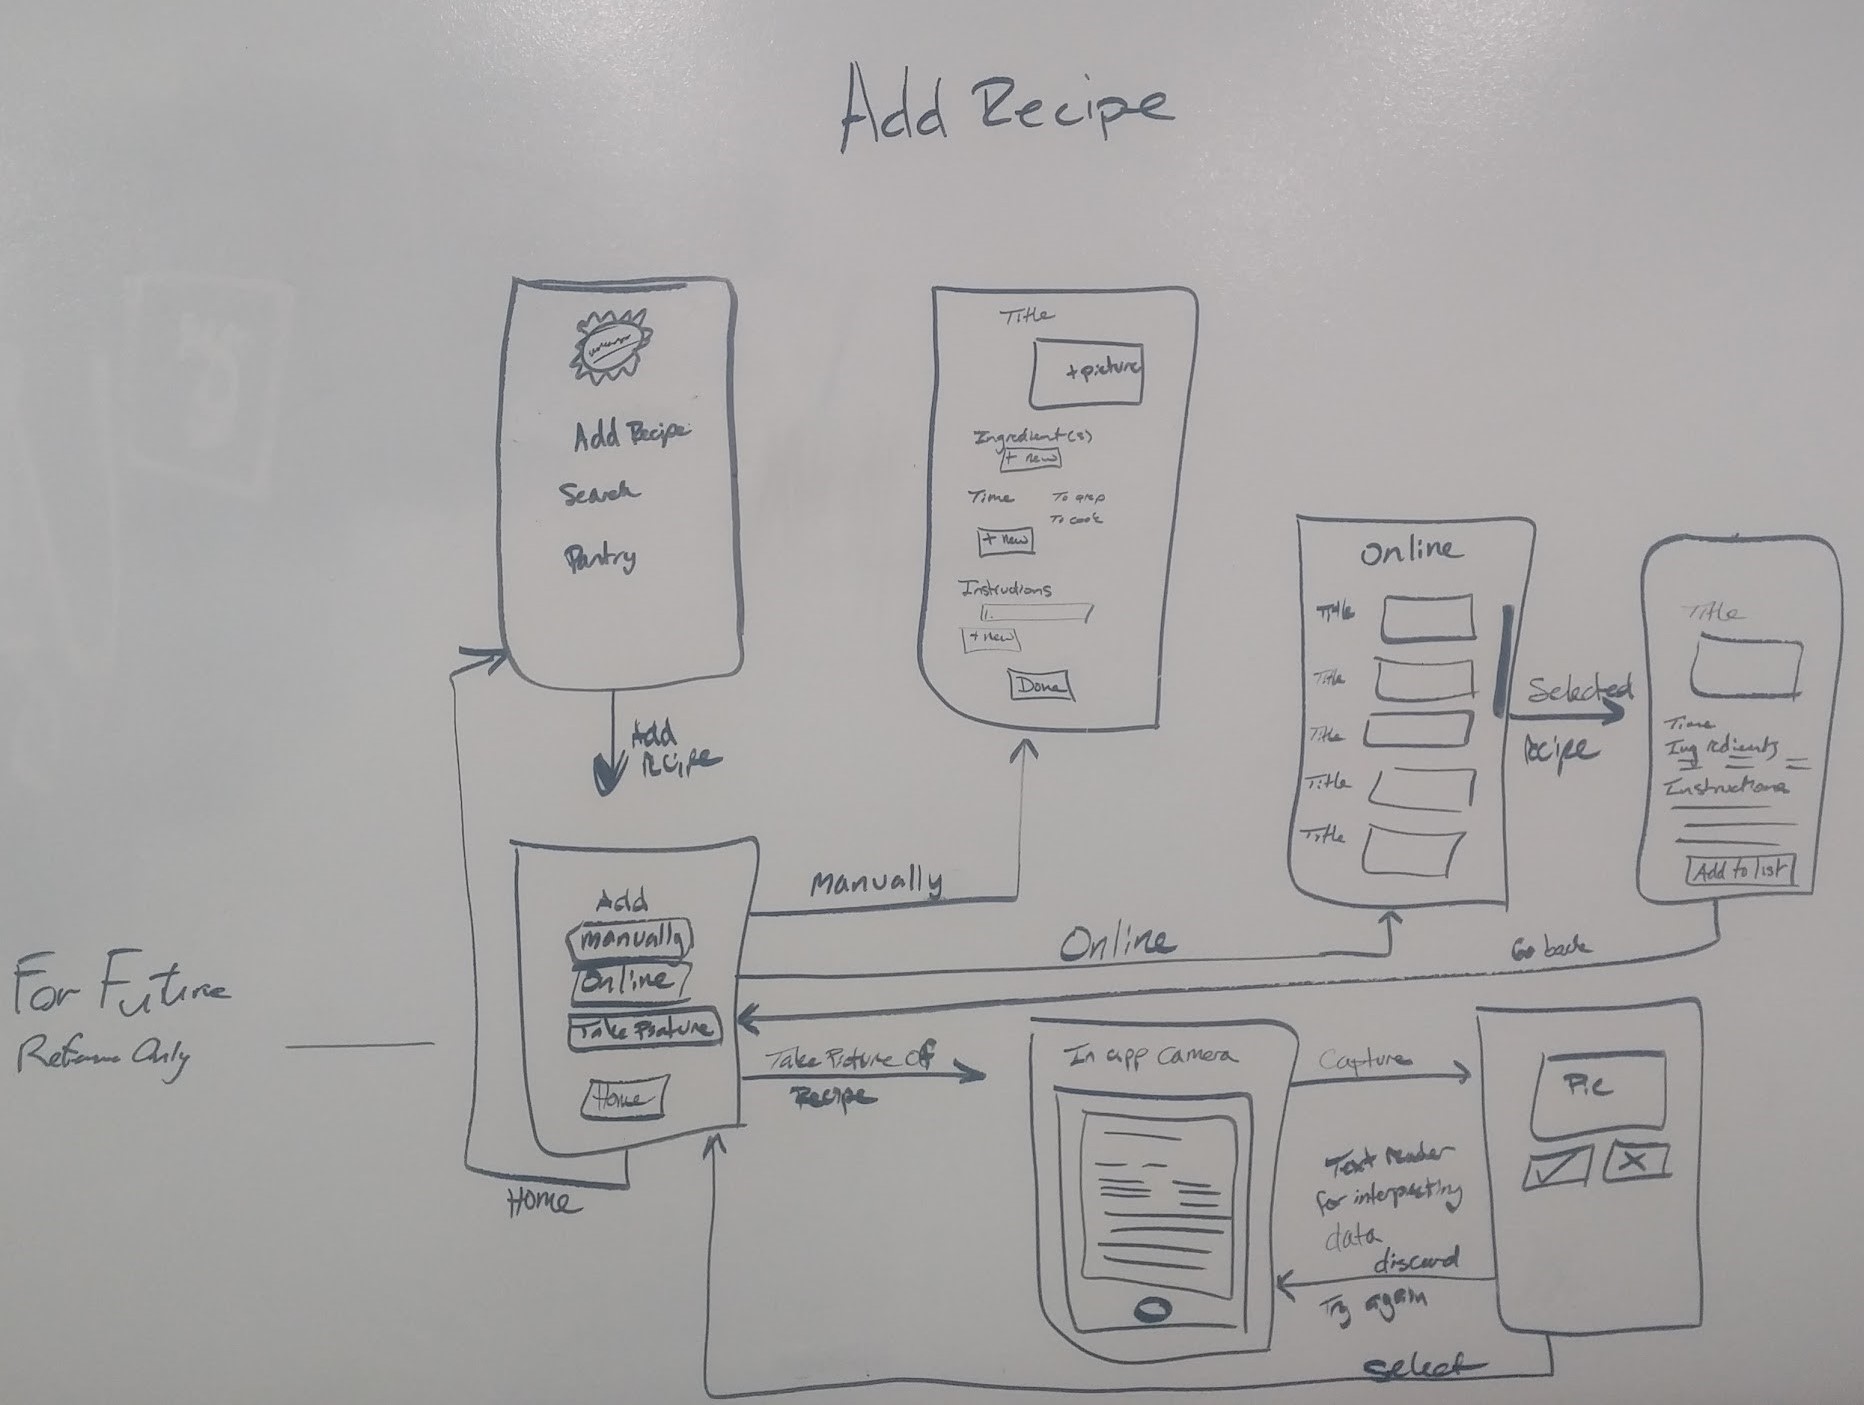 Add Recipe
Add Recipe
Search
Pantry
Add
Recipe
Title
+ picture
Ingredient(s)
+ new
Time
To prep
To cook
+ new
Instructions
1.
+ new
Done
Online
Title
Title
Title
Title
Title
Selected
Recipe
Title
Time
Ingredients
Instructions
Add to list
Manually
Online
Go back
Add
Manually
Online
Take Picture
Home
Home
For Future
Only
Take Picture Of
Recipe
In app Camera
Capture
Pic
Text reader
for
data
discard
Try again
select